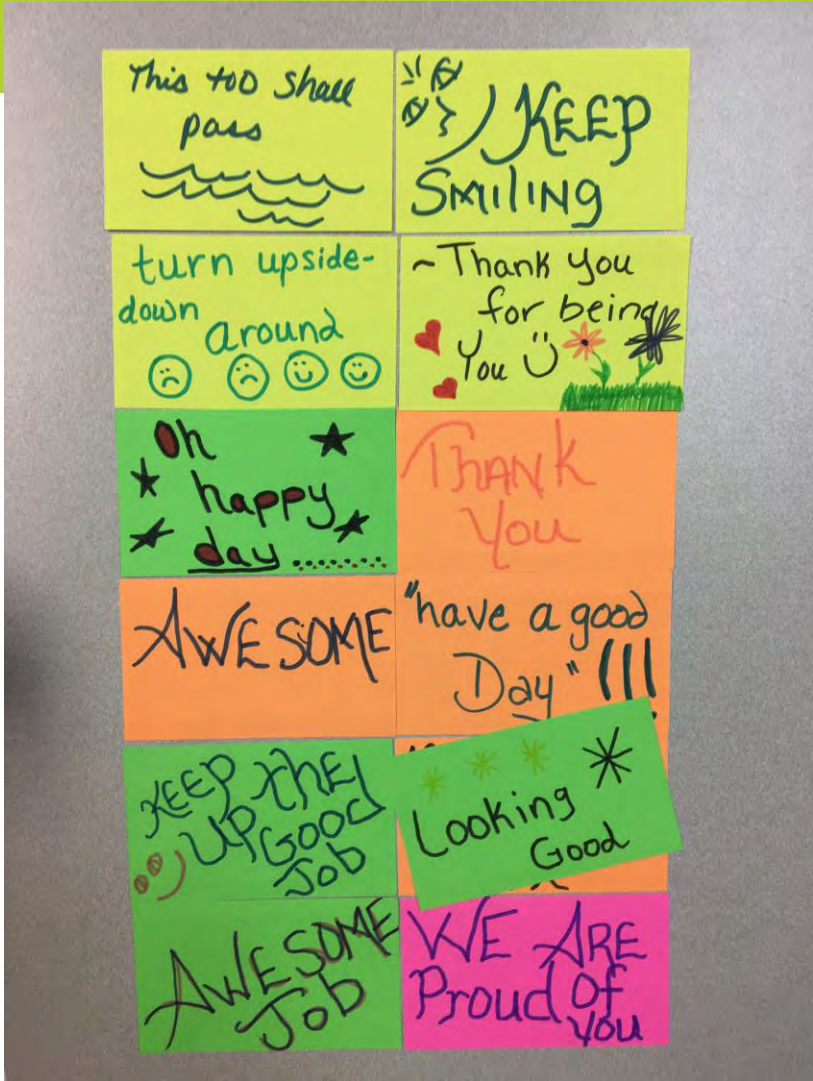 This too shall
pass
KEEP
SMiliNG
turn upside-
down
around
~Thank you
for being
You
Oh
happy
day
THANK
You
AWESOME
"have a good
Day" !!!
KEEP tHE
UP GOOD
Job
Looking
Good
AWESOME
Job
WE ARE
Proud Of
You